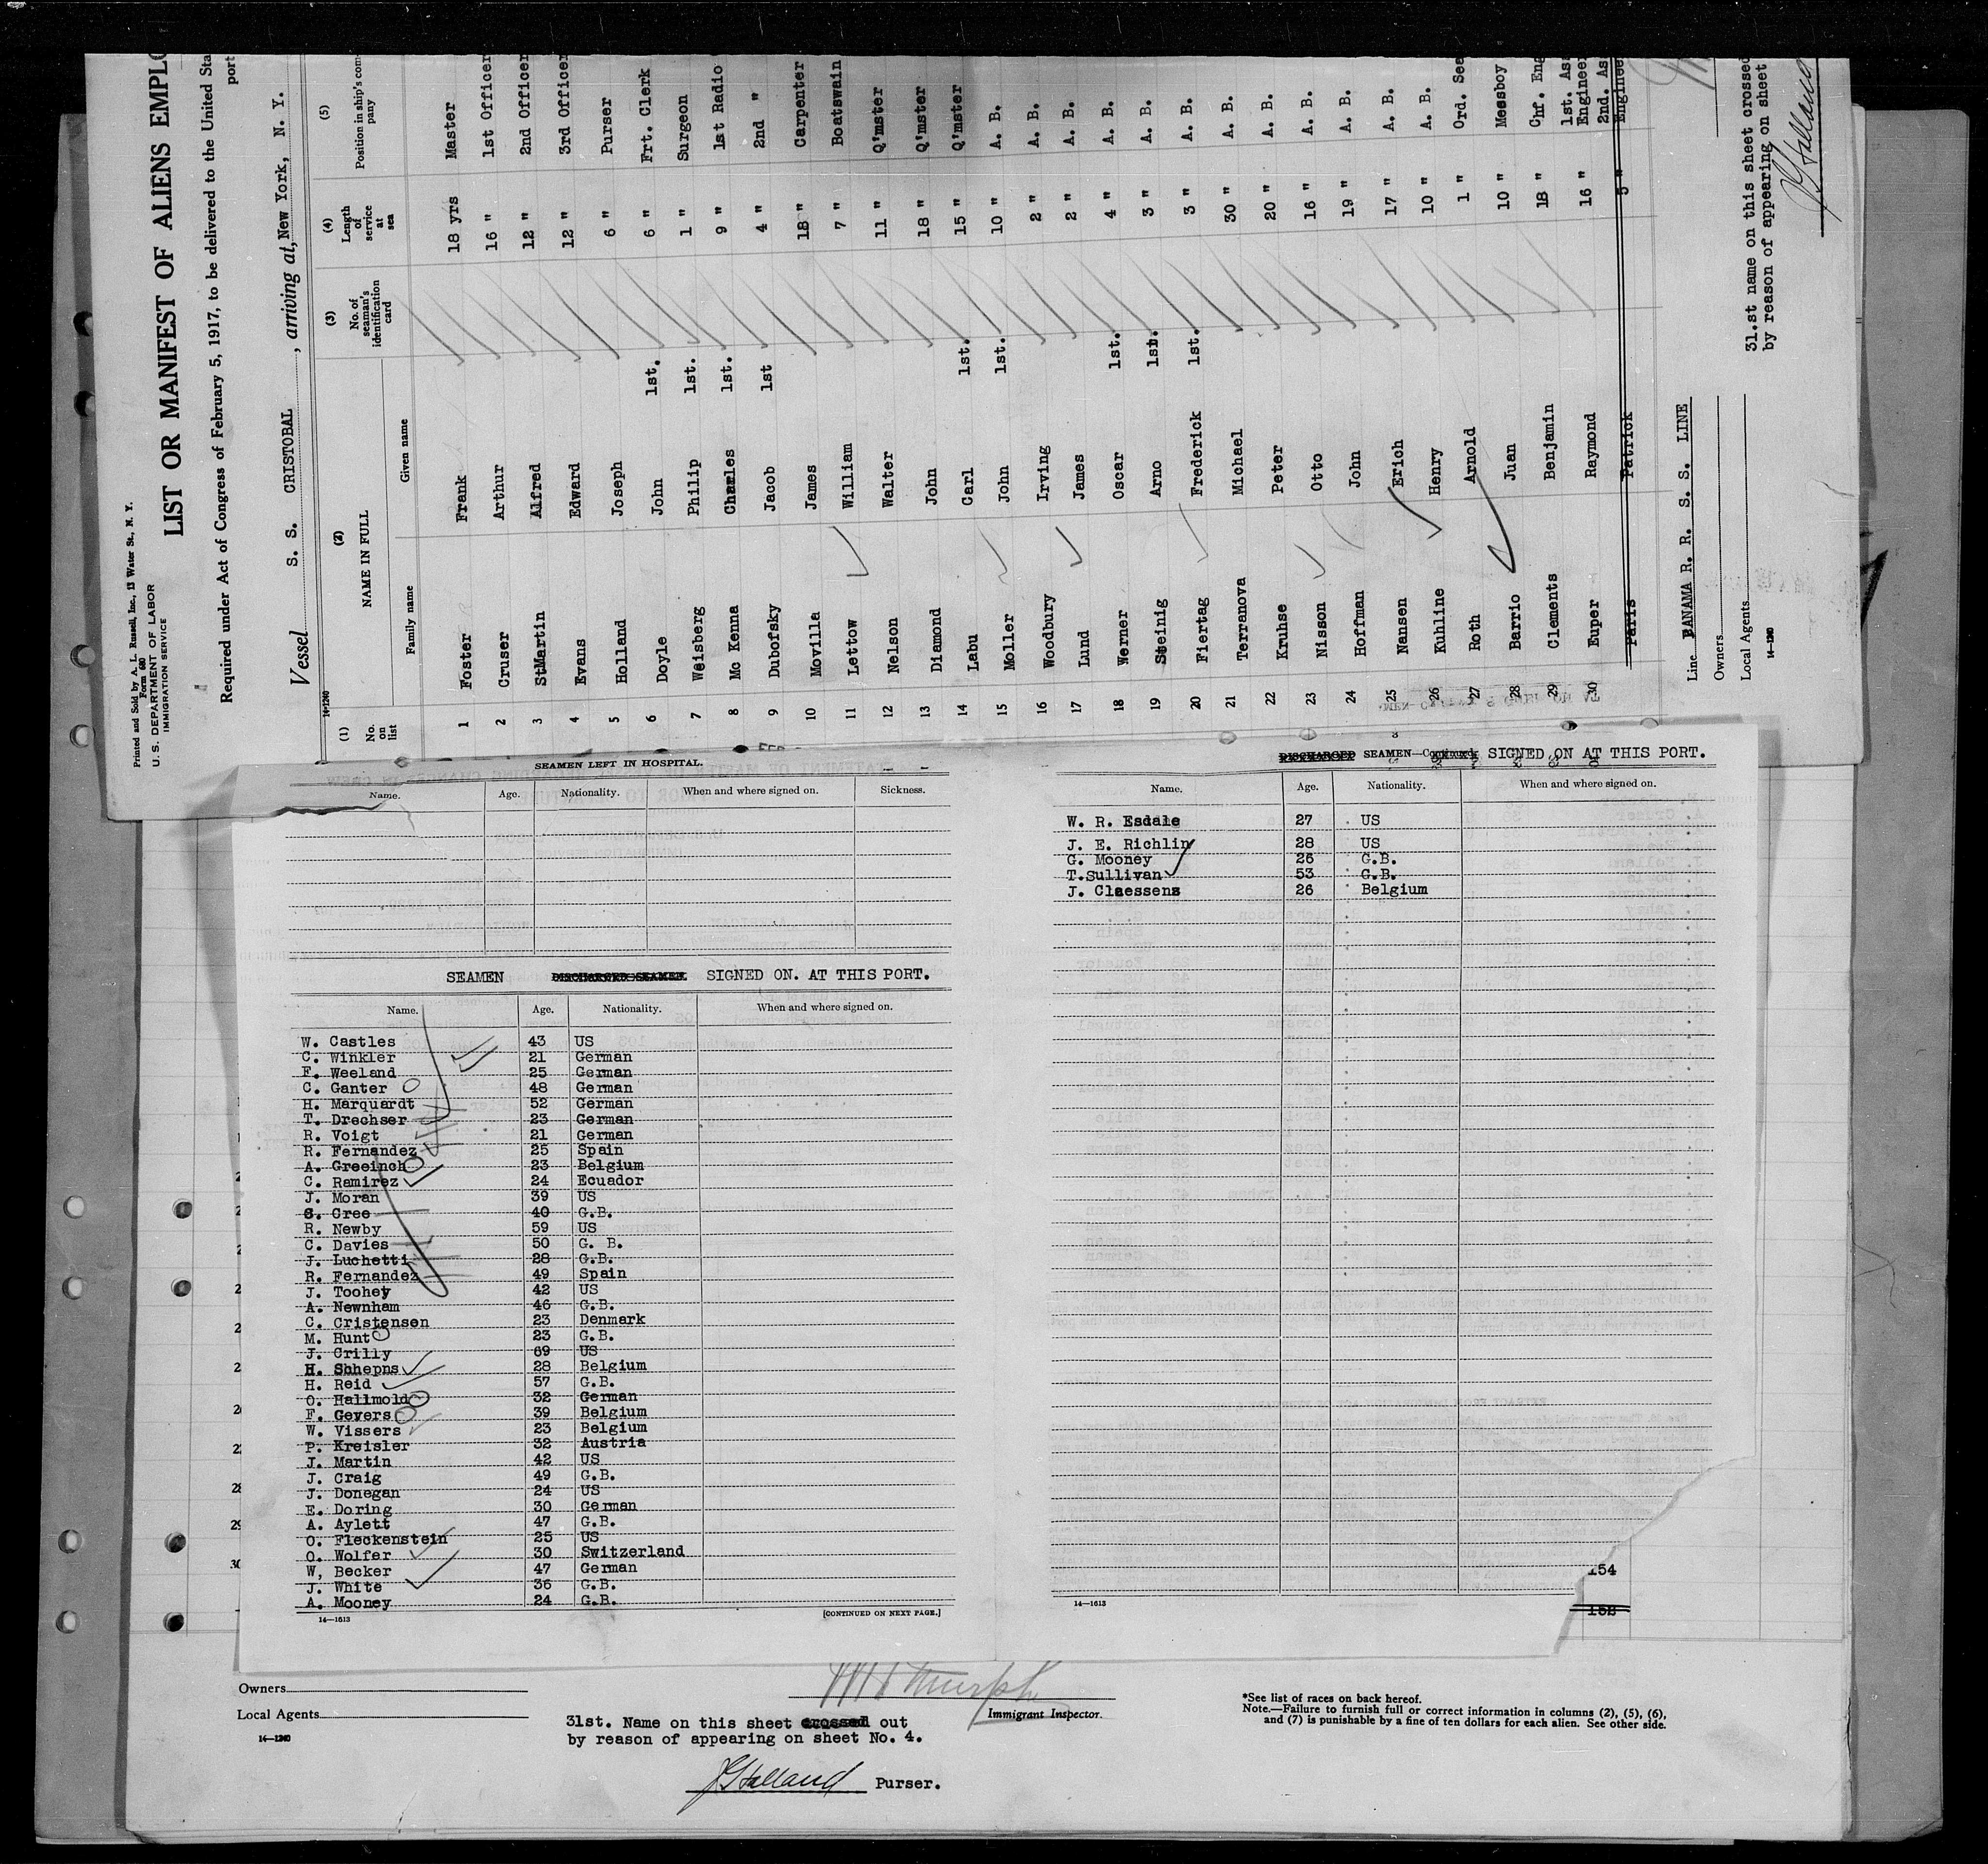 Printed and Sold by A. L. Russell, Inc., 13 Water St., N. Y.
Form 680
U. S. DEPARTMENT OF LABOR
IMMIGRATION SERVICE
LIST OR MANIFEST OF ALIENS EMPLO
Required under Act of Congress of February 5, 1917, to be delivered to the United Sta
port
Vessel S. S. CRISTOBAL, arriving at, New York, N. Y.
14-1240
(1) (2) (3) (4) (5)
No. on list NAME IN FULL No. of seaman's identification card Length of service at sea Position in ship's company
Family name Given name
1 Foster Frank 18 yrs Master
2 Cruser Arthur 16 " 1st Officer
3 StMartin Alfred 12 " 2nd Officer
4 Evans Edward 12 " 3rd Officer
5 Holland Joseph 6 " Purser
6 Doyle John 1st. 6 " Frt. Clerk
7 Weisberg Philip 1st. 1 " Surgeon
8 Mc Kenna Charles 1st. 9 " 1st Radio
9 Dubofsky Jacob 1st 4 " 2nd "
10 Movilla James 18 " Carpenter
11 Lettow William 7 " Boatswain
12 Nelson Walter 11 " Q'mster
13 Diamond John 18 " Q'mster
14 Labu Carl 1st. 15 " Q'mster
15 Moller John 1st. 10 " A. B.
16 Woodbury Irving 2 " A. B.
17 Lund James 2 " A. B.
18 Werner Oscar 1st. 4 " A. B.
19 Steinig Arno 1st. 3 " A. B.
20 Fiertag Frederick 1st. 3 " A. B.
21 Terranova Michael 30 " A. B.
22 Kruhse Peter 20 " A. B.
23 Nisson Otto 16 " A. B.
24 Hoffman John 19 " A. B.
25 Nansen Erich 17 " A. B.
26 Kuhline Henry 10 " A. B.
27 Roth Arnold 1 " Ord. Sea
28 Barrio Juan 10 " Messboy
29 Clements Benjamin 18 " Chf. Eng
30 Euper Raymond 16 " 1st. Ass Engineer
Paris Patrick 5 " 2nd. As Engineer
Line PANAMA R. R. S. S. LINE
Owners
Local Agents
14-1240
31.st name on this sheet crossed
by reason of appearing on sheet
J Holland
SEAMEN LEFT IN HOSPITAL.
Name. Age. Nationality. When and where signed on. Sickness.
SEAMEN DISCHARGED SEAMEN SIGNED ON. AT THIS PORT.
Name. Age. Nationality. When and where signed on.
W. Castles 43 US
C. Winkler 21 German
F. Weeland 25 German
C. Ganter 48 German
H. Marquardt 52 German
T. Drechser 23 German
R. Voigt 21 German
R. Fernandez 25 Spain
A. Greeinch 23 Belgium
C. Ramirez 24 Ecuador
J. Moran 39 US
S. Cree 40 G.B.
R. Newby 59 US
C. Davies 50 G. B.
J. Luchetti 28 G.B.
R. Fernandez 49 Spain
J. Toohey 42 US
A. Newnham 46 G.B.
C. Cristensen 23 Denmark
M. Hunt 23 G.B.
J. Crilly 69 US
H. Shhepns 28 Belgium
H. Reid 57 G.B.
O. Hallmold 32 German
F. Gevers 39 Belgium
W. Vissers 23 Belgium
P. Kreisler 32 Austria
J. Martin 42 US
J. Craig 49 G.B.
J. Donegan 24 US
E. Doring 30 German
A. Aylett 47 G.B.
O. Fleckenstein 25 US
O. Wolfer 30 Switzerland
W, Becker 47 German
J. White 36 G.B.
A. Mooney 24 G.B.
14—1613 [CONTINUED ON NEXT PAGE.]
DISCHARGED SEAMEN—Continued. SIGNED ON AT THIS PORT.
Name. Age. Nationality. When and where signed on.
W. R. Esdale 27 US
J. E. Richlin 28 US
G. Mooney 26 G.B.
T.Sullivan 53 G.B.
J. Claessens 26 Belgium
14—1613
154
152
Owners
Local Agents
14—1240
Immigrant Inspector.
31st. Name on this sheet crossed out
by reason of appearing on sheet No. 4.
J Holland Purser.
*See list of races on back hereof.
Note.—Failure to furnish full or correct information in columns (2), (5), (6),
and (7) is punishable by a fine of ten dollars for each alien. See other side.